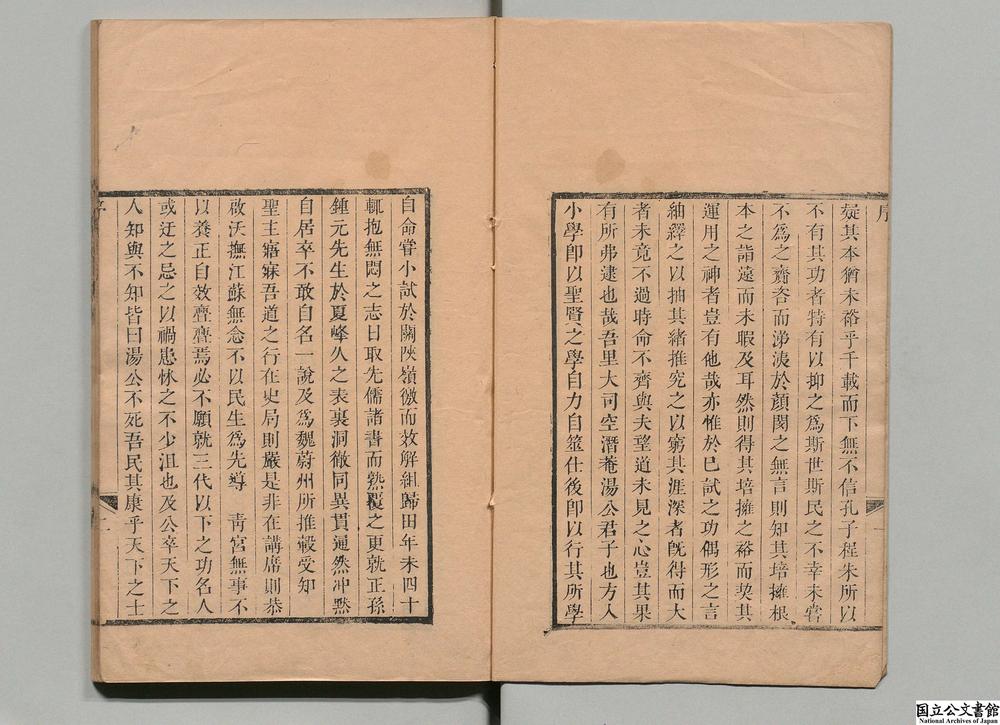 序
疑其本猶未裕乎千載而下無不信孔子程朱所以
不有其功者特有以抑之爲斯世斯民之不幸未嘗
不爲之齎咨而涕洟於顏閔之無言則知其培擁根
本之詣遠而未暇及耳然則得其培擁之裕而契其
運用之神者豈有他哉亦惟於已試之功偶形之言
紬繹之以抽其緒推究之以窮其涯深者旣得而大
者未竟不過時命不齊與夫望道未見之心豈其果
有所弗逮也哉吾里大司空潛菴湯公君子也方入
小學卽以聖賢之學自力自筮仕後卽以行其所學
自命嘗小試於關陝嶺徼而效解組歸田年未四十
輒抱無悶之志日取先儒諸書而熟覆之更就正孫
鍾元先生於夏峰久之表裏洞徹同異貫通然冲黙
自居卒不敢自名一說及爲魏蔚州所推轂受知
聖主寤寐吾道之行在史局則嚴是非在講席則恭
啟沃撫江蘇無念不以民生爲先導　靑宮無事不
以養正自效齊齊焉必不願就三代以下之功名人
或迂之忌之以禍患怵之不少沮也及公卒天下之
人知與不知皆曰湯公不死吾民其康乎天下之士
序
二
国立公文書館
National Archives of Japan